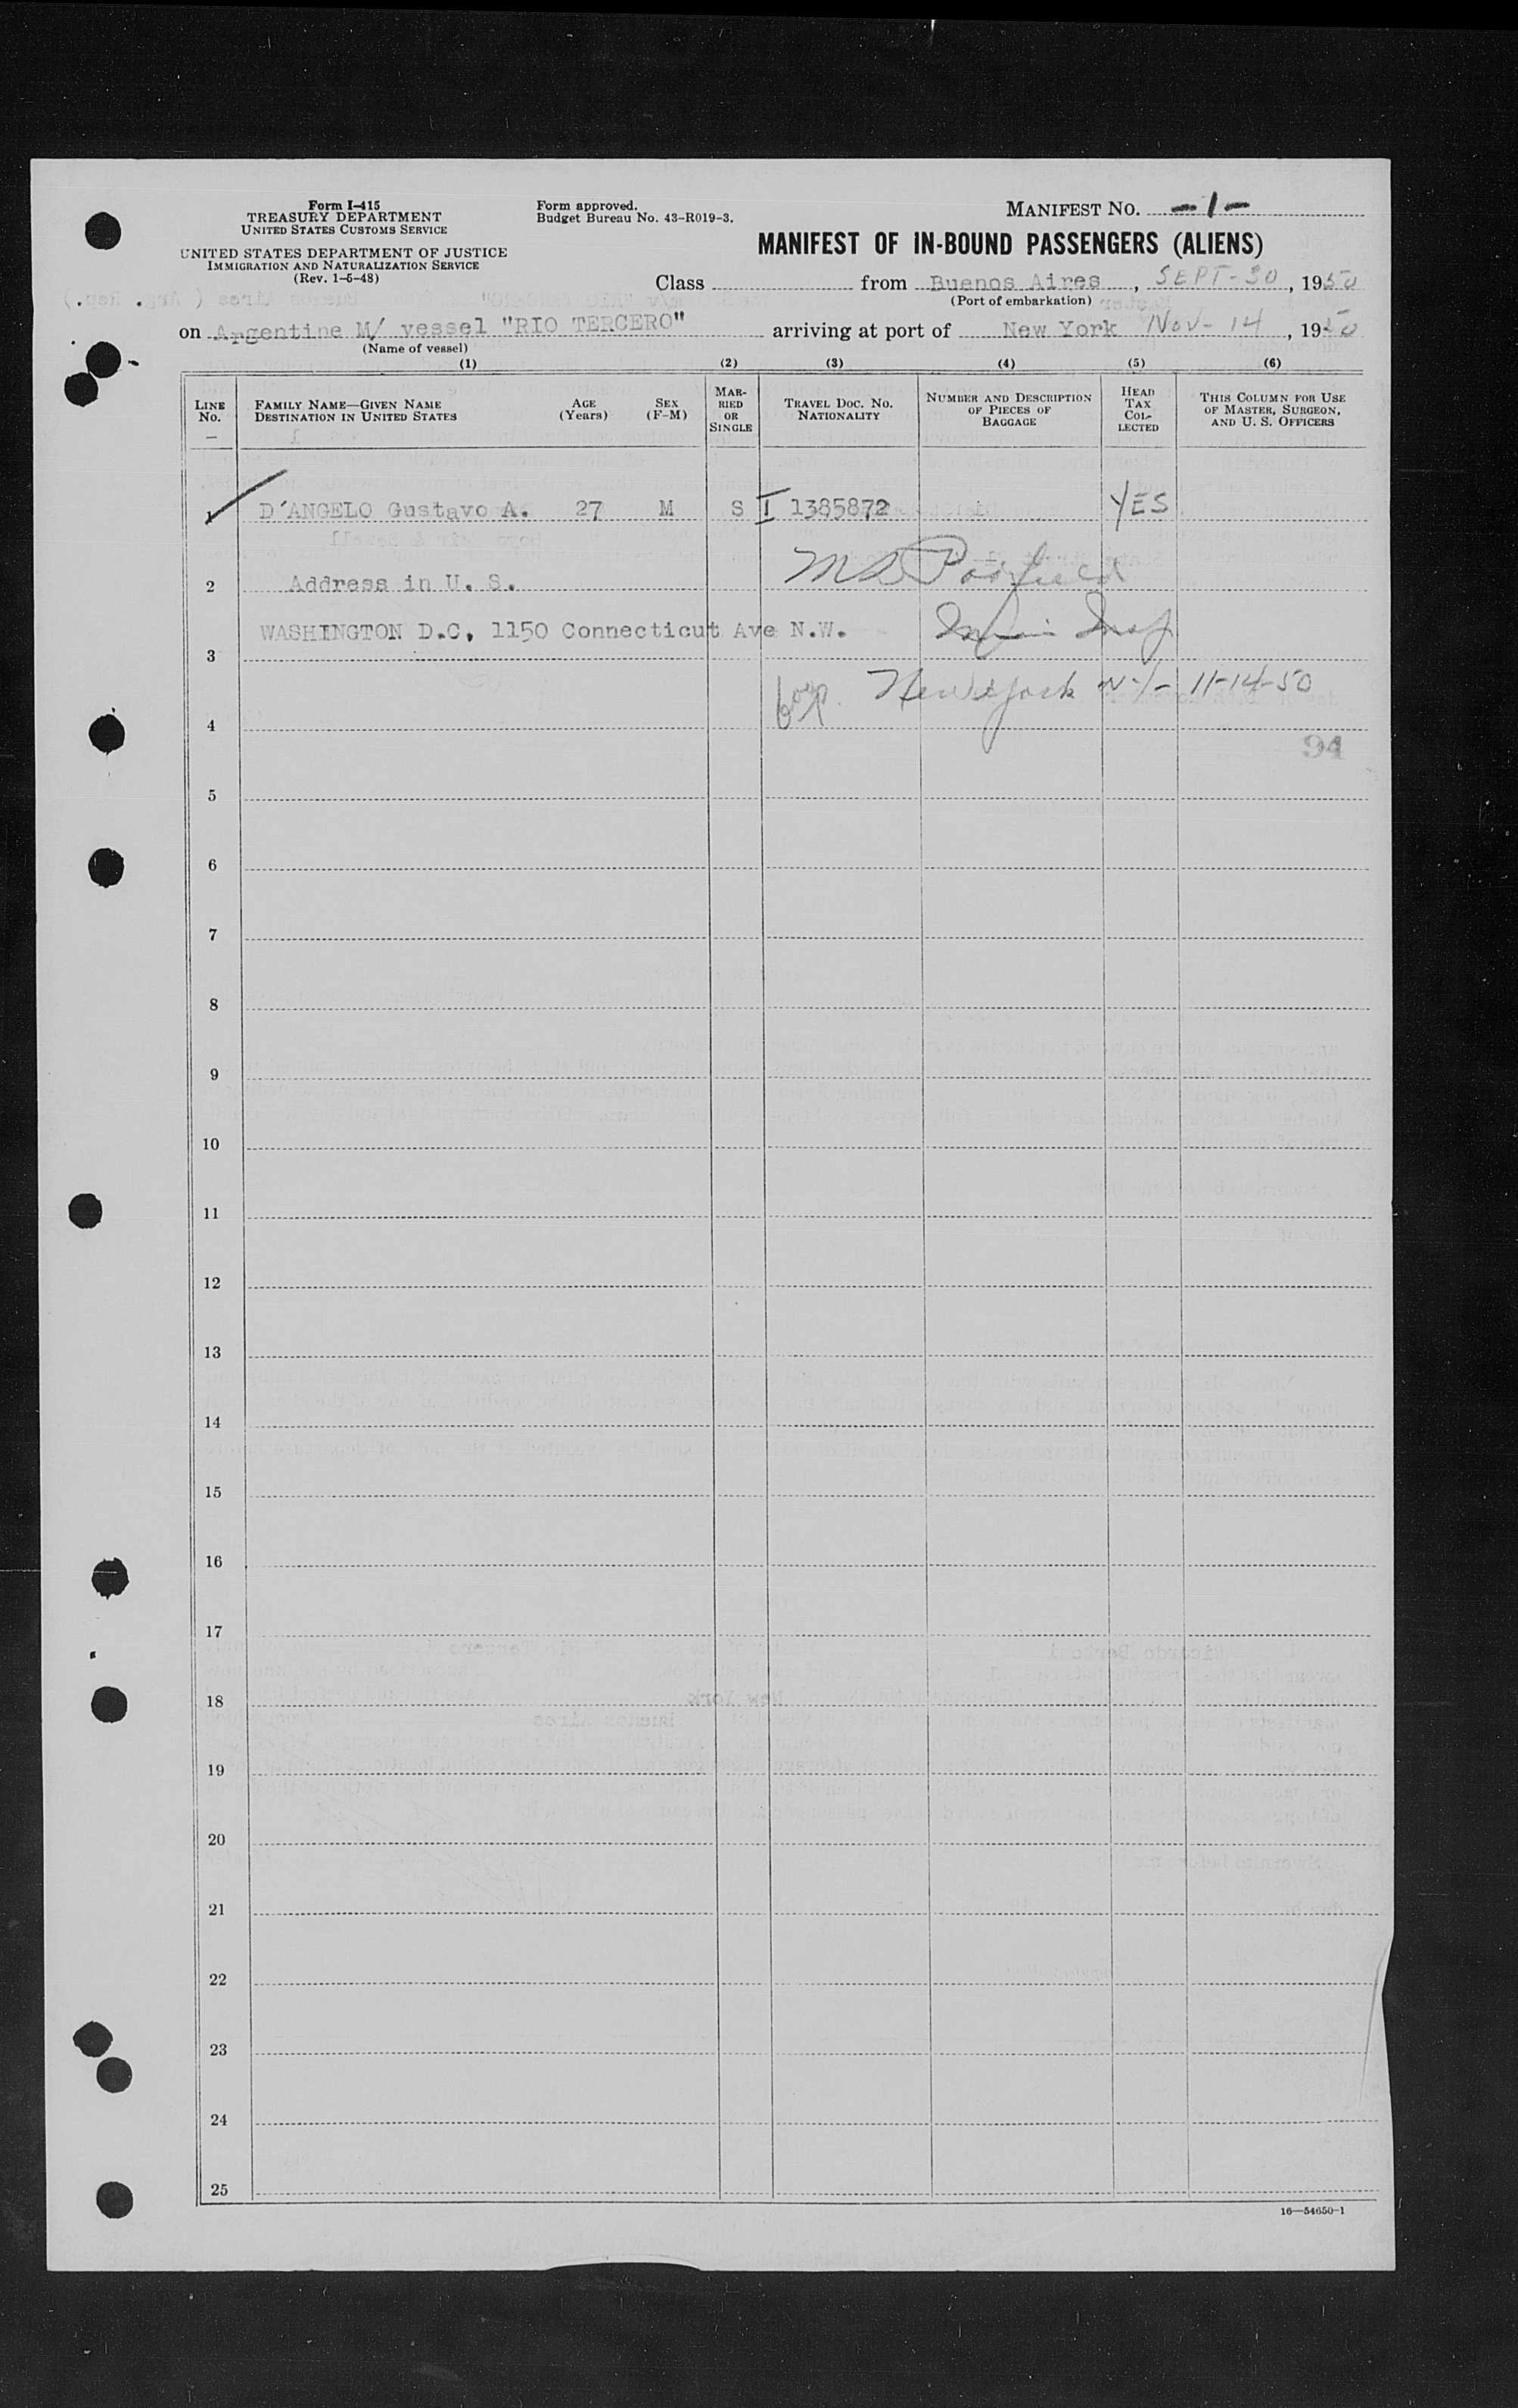 Form I-415
TREASURY DEPARTMENT
UNITED STATES CUSTOMS SERVICE
UNITED STATES DEPARTMENT OF JUSTICE
IMMIGRATION AND NATURALIZATION SERVICE
(Rev. 1-5-48)
Form approved.
Budget Bureau No. 43-R019-3.
MANIFEST NO. -1-
MANIFEST OF IN-BOUND PASSENGERS (ALIENS)
Class from Buenos Aires, SEPT-30, 1950
(Port of embarkation)
on Argentine M/ vessel "RIO TERCERO" arriving at port of New York Nov-14, 1950
(Name of vessel)
(1) (2) (3) (4) (5) (6)
LINE No. FAMILY NAME—GIVEN NAME DESTINATION IN UNITED STATES AGE (Years) SEX (F-M) MARRIED OR SINGLE TRAVEL DOC. NO. NATIONALITY NUMBER AND DESCRIPTION OF PIECES OF BAGGAGE HEAD TAX COLLECTED THIS COLUMN FOR USE OF MASTER, SURGEON, AND U. S. OFFICERS
1 D'ANGELO Gustavo A. 27 M S I 1385872 YES
2 Address in U. S.
WASHINGTON D.C, 1150 Connecticut Ave N.W.
3
New York N.Y- 11-14-50
4
94
5
6
7
8
9
10
11
12
13
14
15
16
17
18
19
20
21
22
23
24
25
16—54650-1